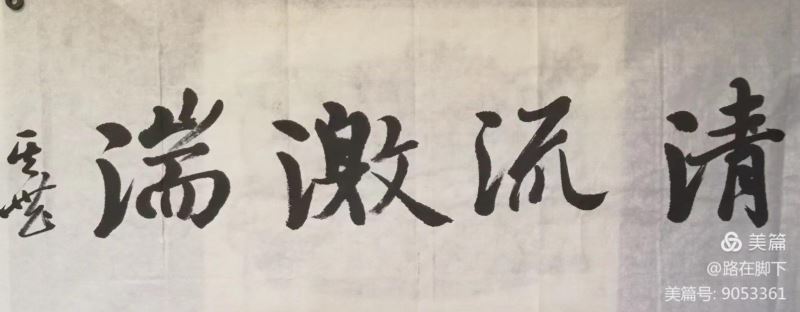 清流激湍
美篇
@路在脚下
美篇号: 9053361